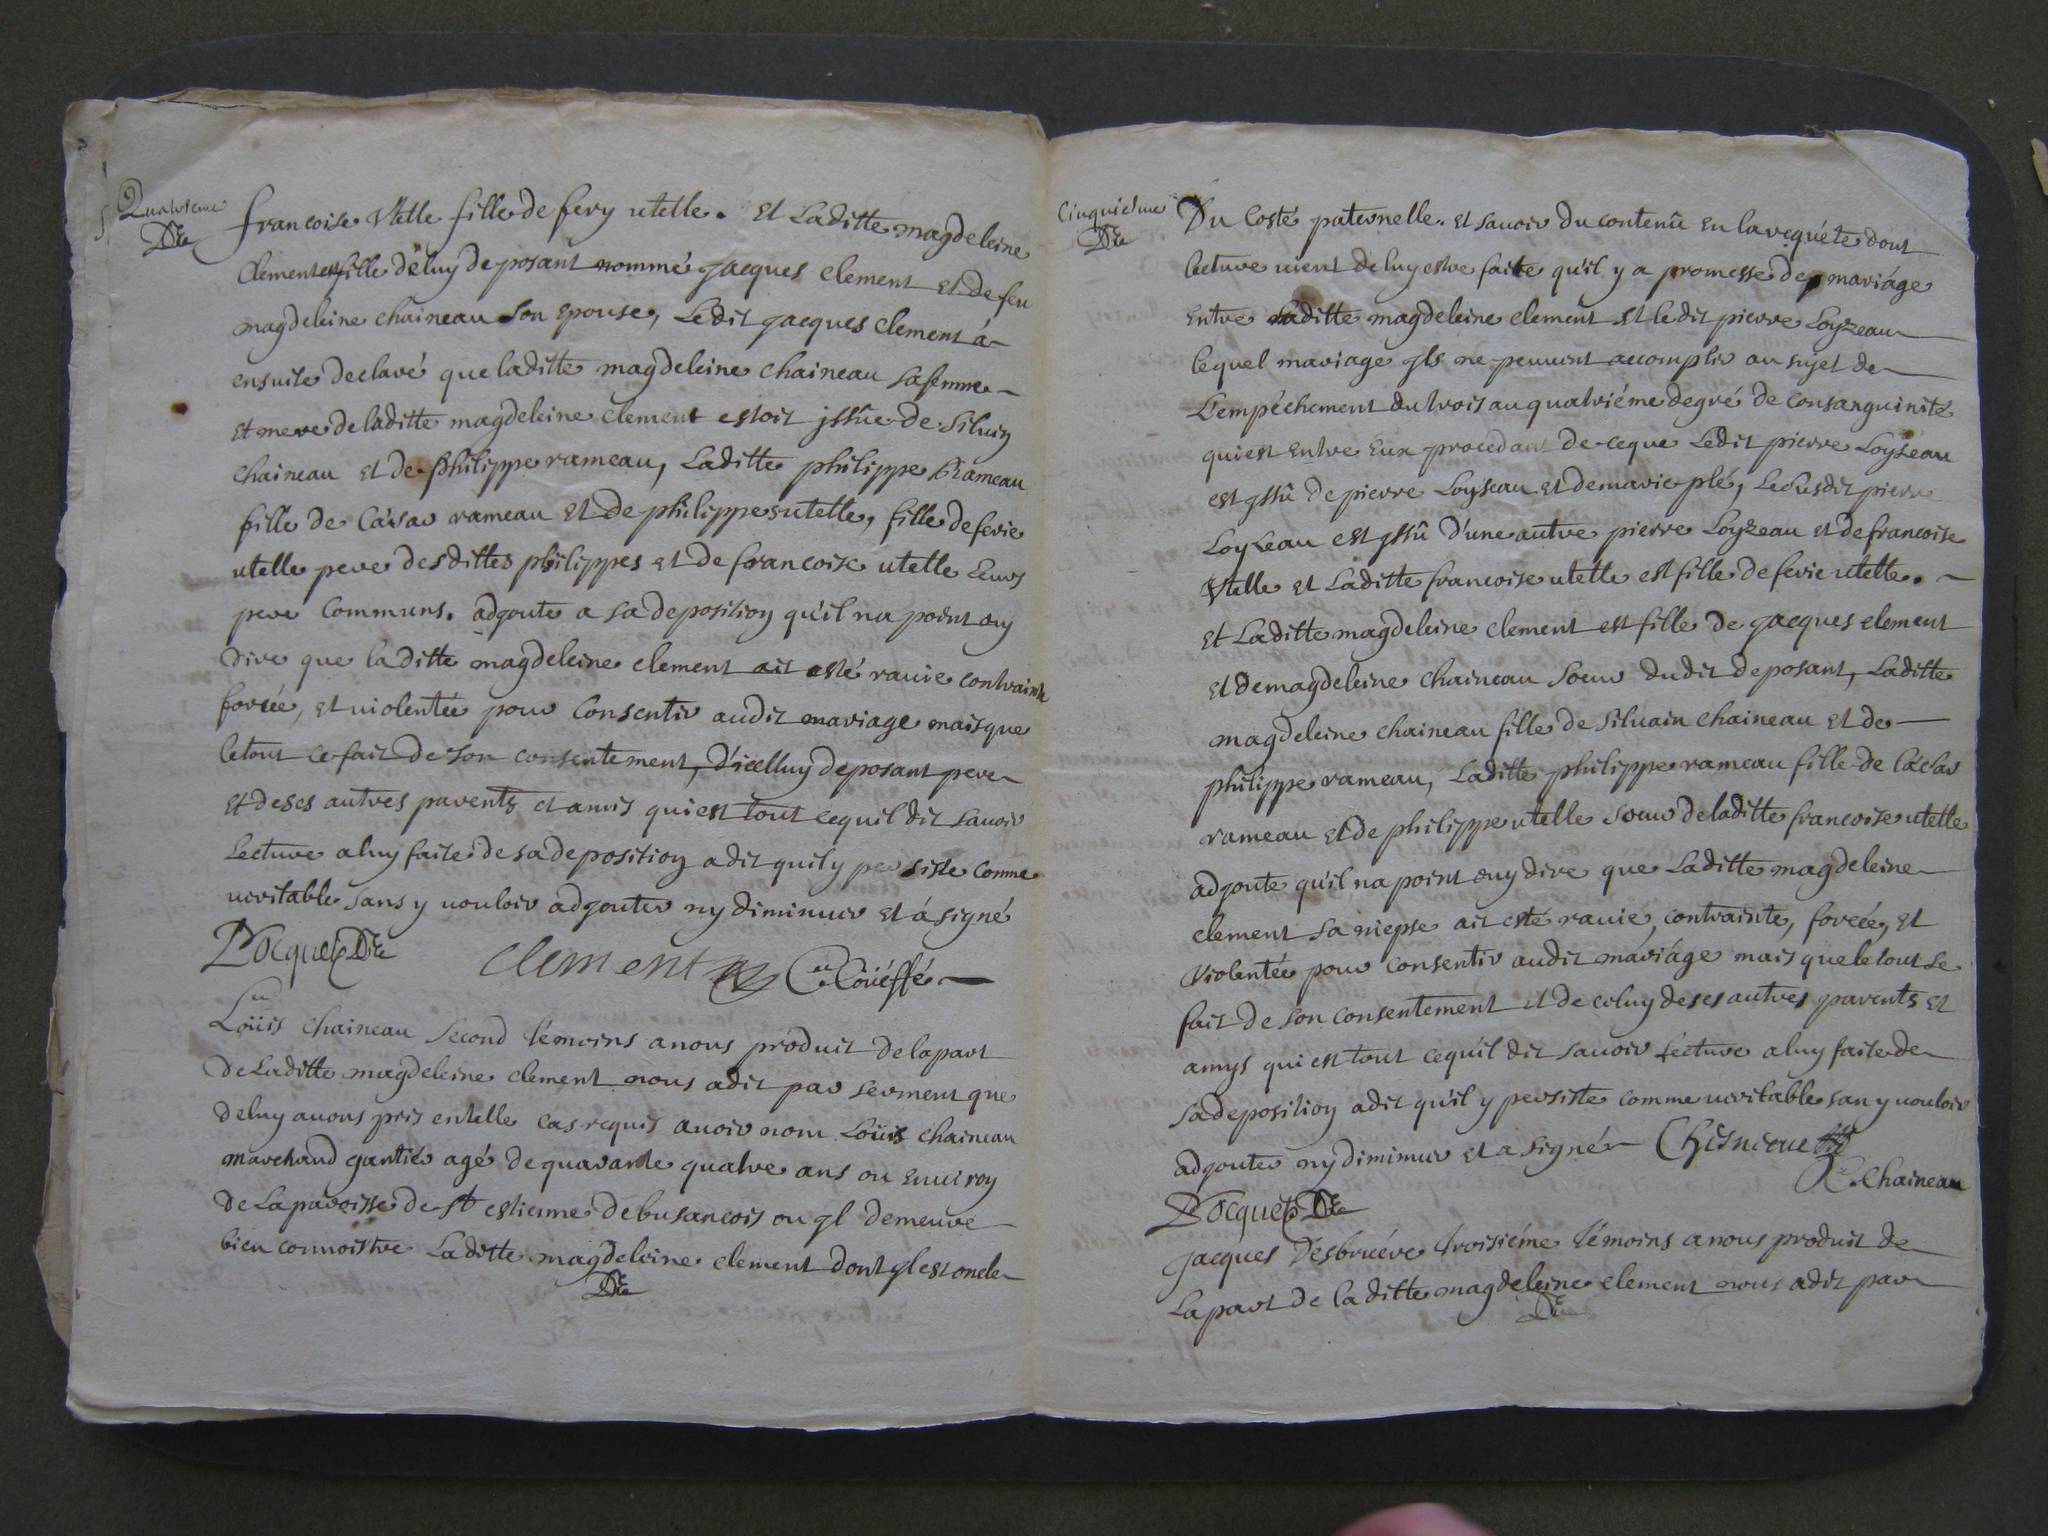 Quatrieme
francoise Utelle fille de fery utelle. Et Laditte magdeleine
Clement est fille de luy deposant nommé jacques Clement Et de feu
magdeleine chaineau Son Epouse, Ledit jacques Clement á
ensuite declaré que laditte magdeleine Chaineau Sa femme
Et mere de laditte magdeleine Clement estoit jssûe de Siluin
Chaineau Et de philippe rameau, Laditte philippe Rameau
fille de Cæsar rameau Et de philippes utelle, fille de ferie
utelle pere desdittes philippes et de francoise utelle Leurs
pere Communs. adjoute a Sa deposition qu'il na point ouy
dire que laditte magdeleine clement ait esté rauie contrainte
forcée, et uiolentée pour Consentir audit mariage mais que
le tout ce fait de Son consentement, D'icelluy deposant pere
Et de ses autres parents et amis qui est tout cequil dit Sauoir
Lecture a luy faite de sa deposition a dit quil y persiste Comme
ueritable Sans y uouloir adjouter ny diminuer et á signé
Docquet
Clement
Coüeffé
Loüis Chaineau Second témoins a nous produit de la part
de Laditte magdeleine clement nous a dit par Serment que
de luy auons pris en telle cas requis auoir nom Loüis chaineau
marchand gantier agé de quarante quatre ans ou Enuiron
de La paroisse de St estienne de busancois ou jl demeure
bien connoistre Laditte magdeleine clement dont jl est oncle
Cinquiesme
Du Costé paternelle. et sauoir du contenû en la requéte dont
lecture uient de luy estre faite qu'il y a promesse de mariáge
entre laditte magdeleine clement et ledit pierre Loyzeau
lequel mariage jls ne peuuent accomplir au sujet de
L'empéchement du trois au quatriéme degré de Consanguinité
qui est entre Eux procedant de ce que Ledit pierre Loyseau
est jssû de pierre Loyseau et de marie plé, Ledit pierre
Loyzeau est jssû d'une autre pierre Loyzeau et de francoise
Utelle et Laditte francoise utelle est fille de ferie utelle.
et Laditte magdeleine clement est fille de jacques clement
et de magdeleine Chaineau Soeur dudit deposant, Laditte
magdeleine chaineau fille de Siluain chaineau et de
philippe rameau, Laditte philippe rameau fille de Cæsar
rameau et de philippe utelle Soeur de laditte francoise utelle
adjoute qu'il na point ouy dire que Laditte magdeleine
clement Sa niepse ait esté rauie, contrainte, forcée, et
Violentée pour consentir audit máriáge mais que le tout Se
fait de son consentement et de celuy de ses autres parents et
amys qui est tout cequ'il dit Sauoir Lecture a luy faite de
Sa deposition a dit qu'il y persiste comme ueritable san y uouloir
adjouter ny diminuer et a signé
Chaineau
Docquet
jacques Desbruére troisiéme témoins a nous produit de
La part de laditte magdeleine clement nous a dit par